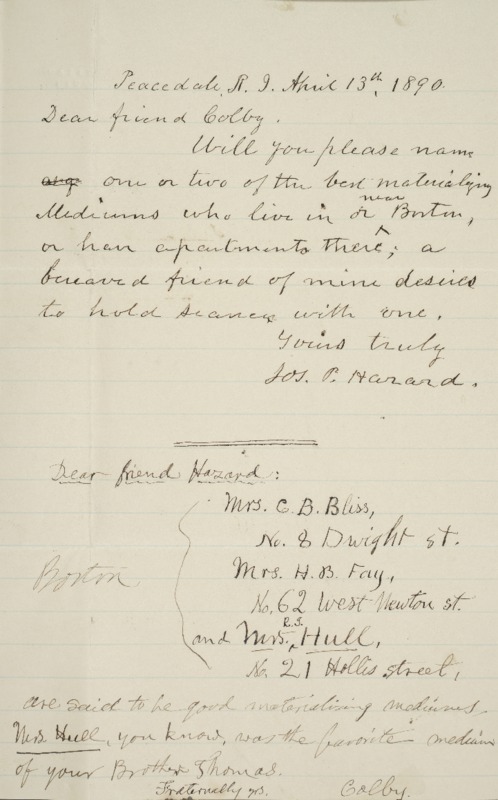 Peacedale, R. I. April 13th, 1890.
Dear friend Colby.
Will you please name
one or two of the best materializing
Mediums who live in or near Boston,
or have apartments there; a
bereaved friend of mine desires
to hold seances with one.
Yours truly
Jos. P. Hazard.
Dear friend Hazard:
Mrs. C. B. Bliss,
No. 8 Dwight st.
Mrs. H. B. Fay,
Boston
No. 62 West Newton st.
and Mrs. R.S. Hull,
No. 21 Hollis street,
are said to be good materializing mediums.
Mrs. Hull, you know, was the favorite medium
of your Brother Thomas.
Fraternally yrs.
Colby.